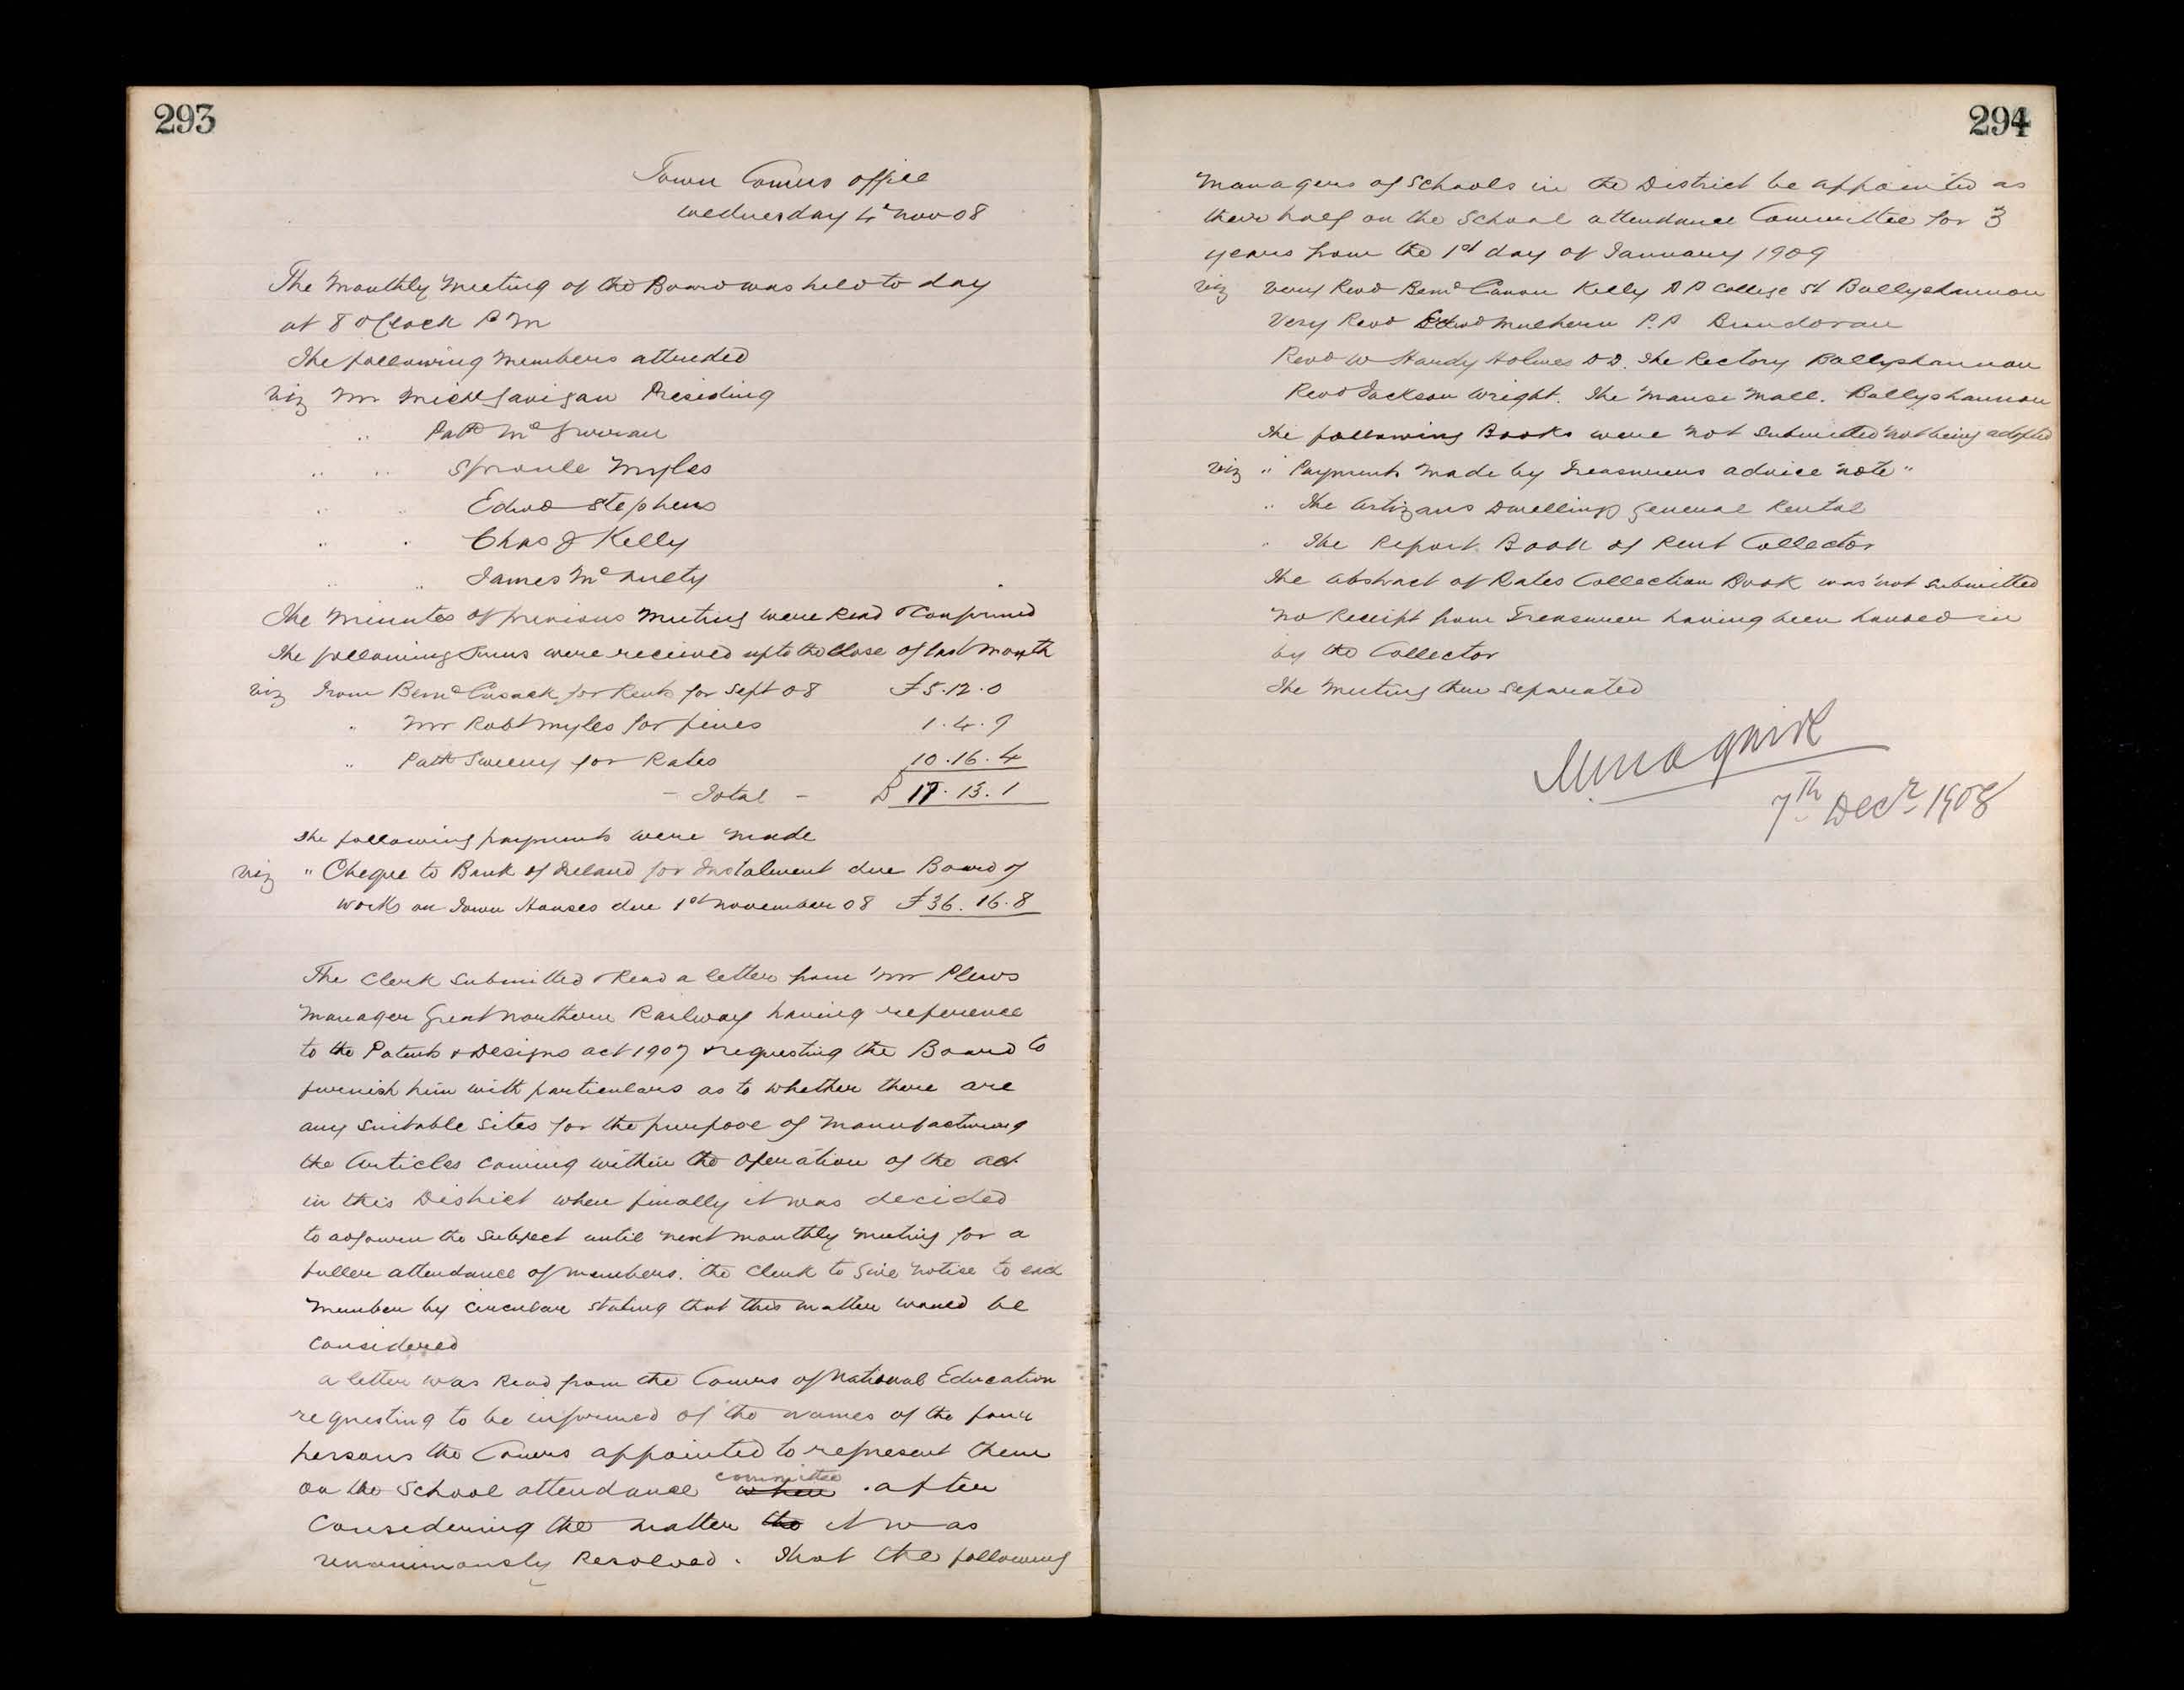 293
Town Comrs office
Wednesday 4th Nov 08
The Monthly Meeting of the Board was held to day
at 8 oClock P M
The following Members attended
Viz Mr Michl Gavigan Presiding
" Patk Mc
" " Sproule Myles
" " Edwd Stephens
" " Chas J Kelly
" " James McNulty
The Minutes of previous Meeting were Read & Confirmed
The following Sums were received up to the Close of last Month
Viz From Bernd Cusack for Rents for Sept 08 £5.12.0
" Mr Robt Myles for fines 1.4.9
" Patk Sweeny for Rates 10.16.4
- Total - £ 17.13.1
The following payments were Made
Viz " Cheque to Bank of Ireland for Instalment due Board of
Works on Town Houses due 1st November 08 £36.16.8
The Clerk Submitted & Read a letter from Mr Plews
Manager Great Northern Railway having reference
to the Patents & Designs act 1907 & requesting the Board to
furnish him with particulars as to whether there are
any Suitable Sites for the purpose of Manufacturing
the Articles Coming within the Operation of the act
in this District when finally it was decided
to adjourn the Subject until next monthly Meeting for a
fuller attendance of Members. the Clerk to Give notice to each
Member by Circular Stating that this matter would be
Considered
a letter was Read from the Comrs of National Education
requesting to be informed of the names of the four
persons the Comrs appointed to represent them
on the School attendance committee when . after
Considering the matter the it was
unanimously Resolved . That the following
294
Managers of Schools in the District be appointed as
their half on the School attendance Committee for 3
years from the 1st day of January 1909
Viz Very Revd Bernd Canon Kelly P P College St Ballyshannon
Very Revd Edwd Mulhern P.P Bundoran
Revd W Handy Holmes D D. The Rectory Ballyshannon
Revd Jackson Wright. The Manse Mall. Ballyshannon
The following Books were not Submitted not being adopted
Viz " Payments Made by Treasurers advice note "
" The Artizans Dwellings General Rental
" The Report Book of Rent Collector
The Abstract of Rates Collection Book was not Submitted
no Receipt from Treasurer having been handed in
by the Collector
The Meeting then Separated
7th Decr 1908